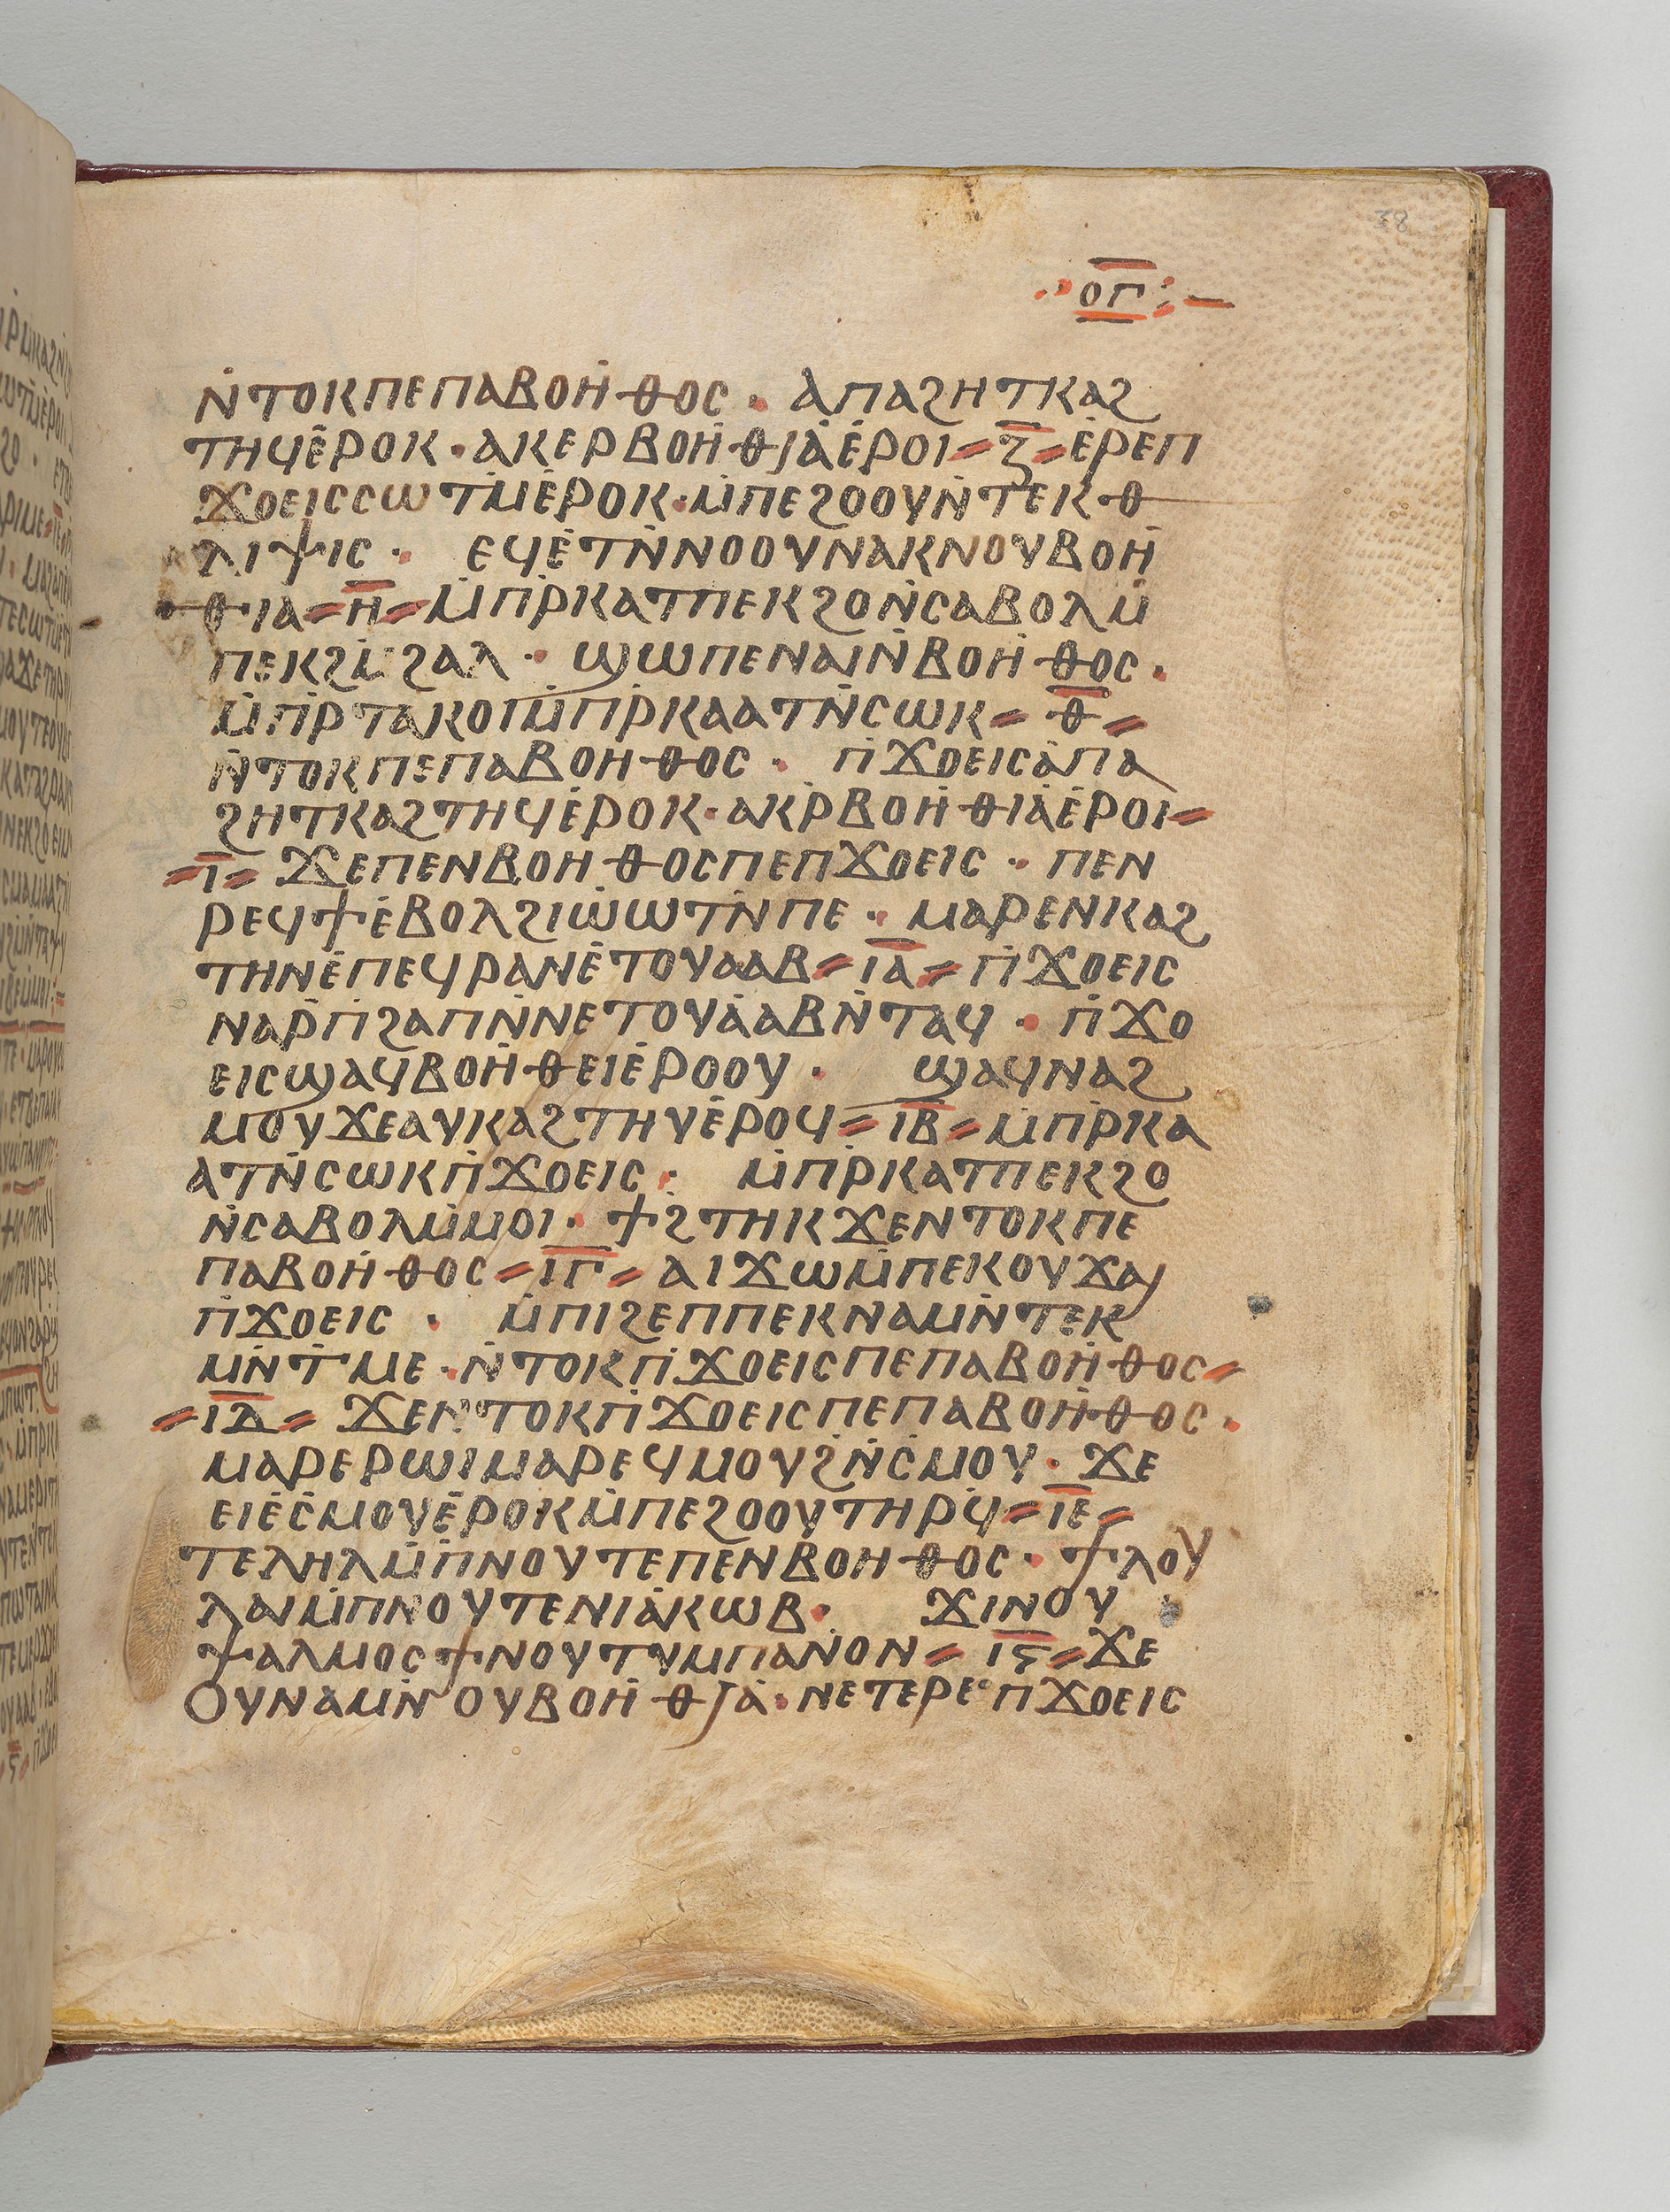 38
ⲟⲅ
ⲛ̇ⲧⲟⲕⲡⲉⲡⲁⲃⲟⲏ̇ⲑⲟⲥ · ⲁⲡⲁϩⲏⲧⲕⲁϩ
ⲧⲏϥⲉ̇ⲣⲟⲕ · ⲁⲕⲉⲣⲃⲟⲏ̇ⲑⲓⲁ̇ⲉ̇ⲣⲟⲓ ⲍ̅ ⲉ̇ⲣⲉⲡ
ϫⲟⲉⲓⲥⲥⲱⲧⲙ̇ⲉ̇ⲣⲟⲕ · ⲙ̇ⲡⲉϩⲟⲟⲩⲛ̇ⲧⲉⲕⲑ
ⲗⲓⲯⲓⲥ · ⲉϥⲉ̇ⲧⲛ̇ⲛⲟⲟⲩⲛⲁⲕⲛⲟⲩⲃⲟⲏ̇
ⲑⲓⲁ ⲏ̅ ⲙ̇ⲡⲣ̇ⲕⲁⲧⲡⲉⲕϩⲟⲛ̇ⲥⲁⲃⲟⲗⲙ̇
ⲡⲉⲕϩⲙ̇ϩⲁⲗ · ϣⲱⲡⲉⲛⲁⲓⲛ̇ⲃⲟⲏ̇ⲑⲟⲥ ·
ⲙ̇ⲡⲣ̇ⲧⲁⲕⲟⲓⲙ̇ⲡⲣ̇ⲕⲁⲁⲧⲛ̇ⲥⲱⲕ ⲑ̅
ⲛ̇ⲧⲟⲕⲡⲉⲡⲁⲃⲟⲏⲑⲟⲥ · ⲡ̇ϫⲟⲉⲓⲥⲁ̇ⲡⲁ
ϩⲏⲧⲕⲁϩⲧⲏϥⲉ̇ⲣⲟⲕ · ⲁⲕⲣ̇ⲃⲟⲏ̇ⲑⲓⲁ̇ⲉ̇ⲣⲟⲓ
ⲓ̅ ϫⲉⲡⲉⲛⲃⲟⲏⲑⲟⲥⲡⲉⲡϫⲟⲉⲓⲥ · ⲡⲉⲛ
ⲣⲉϥϯⲉ̇ⲃⲟⲗϩⲓⲱ̇ⲱⲧⲛ̇ⲡⲉ · ⲙⲁⲣⲉⲛⲕⲁϩ
ⲧⲏⲛⲉ̇ⲡⲉϥⲣⲁⲛⲉ̇ⲧⲟⲩⲁⲁⲃ ⲓⲁ̅ ⲡ̇ϫⲟⲉⲓⲥ
ⲛⲁⲣ̇ⲡ̇ϩⲁⲡⲛ̇ⲛⲉⲧⲟⲩⲁ̇ⲁⲃⲛ̇ⲧⲁϥ · ⲡ̇ϫⲟ
ⲉⲓⲥϣⲁϥⲃⲟⲏ̇ⲑⲉⲓⲉ̇ⲣⲟⲟⲩ · ϣⲁϥⲛⲁϩ
ⲙⲟⲩϫⲉⲁⲩⲕⲁϩⲧⲏⲩⲉ̇ⲣⲟϥ ⲓⲃ̅ ⲙ̇ⲡⲣ̇ⲕⲁ
ⲁⲧⲛ̇ⲥⲱⲕⲡ̇ϫⲟⲉⲓⲥ · ⲙ̇ⲡⲣ̇ⲕⲁⲧⲡⲉⲕϩⲟ
ⲛ̇ⲥⲁⲃⲟⲗⲙ̇ⲙⲟⲓ · ϯϩⲧⲏⲕϫⲉⲛⲧⲟⲕⲡⲉ
ⲡⲁⲃⲟⲏ̇ⲑⲟⲥ ⲓⲅ̅ ⲁⲓϫⲱⲙ̇ⲡⲉⲕⲟⲩϫⲁⲓ
ⲡ̇ϫⲟⲉⲓⲥ · ⲙ̇ⲡⲓϩⲉⲡⲡⲉⲕⲛⲁⲙⲛ̇ⲧⲉⲕ
ⲙⲛ̇ⲧⲙⲉ · ⲛ̇ⲧⲟⲕⲡ̇ϫⲟⲉⲓⲥⲡⲉⲡⲁⲃⲟⲏ̇ⲑⲟⲥ
ⲓⲇ̅ ϫⲉⲛⲧⲟⲕⲡ̇ϫⲟⲉⲓⲥⲡⲉⲡⲁⲃⲟⲏ̇ⲑⲟⲥ ·
ⲙⲁⲣⲉⲣⲱⲓⲙⲁⲣⲉϥⲙⲟⲩϩⲛ̇ⲥ̇ⲙⲟⲩ · ϫⲉ
ⲉⲓⲉ̇ⲥ̇ⲙⲟⲩⲉ̇ⲣⲟⲕⲙ̇ⲡⲉϩⲟⲟⲩⲧⲏⲣϥ̇ ⲓⲉ̅
ⲧⲉⲗⲏⲗⲙ̇ⲡ̇ⲛⲟⲩⲧⲉⲡⲉⲛⲃⲟⲏⲑⲟⲥ · ϯⲗⲟⲩ
ⲗⲁⲓⲙ̇ⲡⲛⲟⲩⲧⲉⲛⲓⲁ̇ⲕⲱⲃ · ϫⲓⲛⲟⲩ
ⲯⲁⲗⲙⲟⲥϯⲛⲟⲩⲧⲩⲙⲡⲁⲛⲟⲛ ⲓⲋ̅ ϫⲉ
ⲟⲩⲛⲁⲙⲛ̇ⲟⲩⲃⲟⲏ̇ⲑⲓⲁ̇ · ⲛⲉⲧⲉⲣⲉⲡϫⲟⲉⲓⲥ